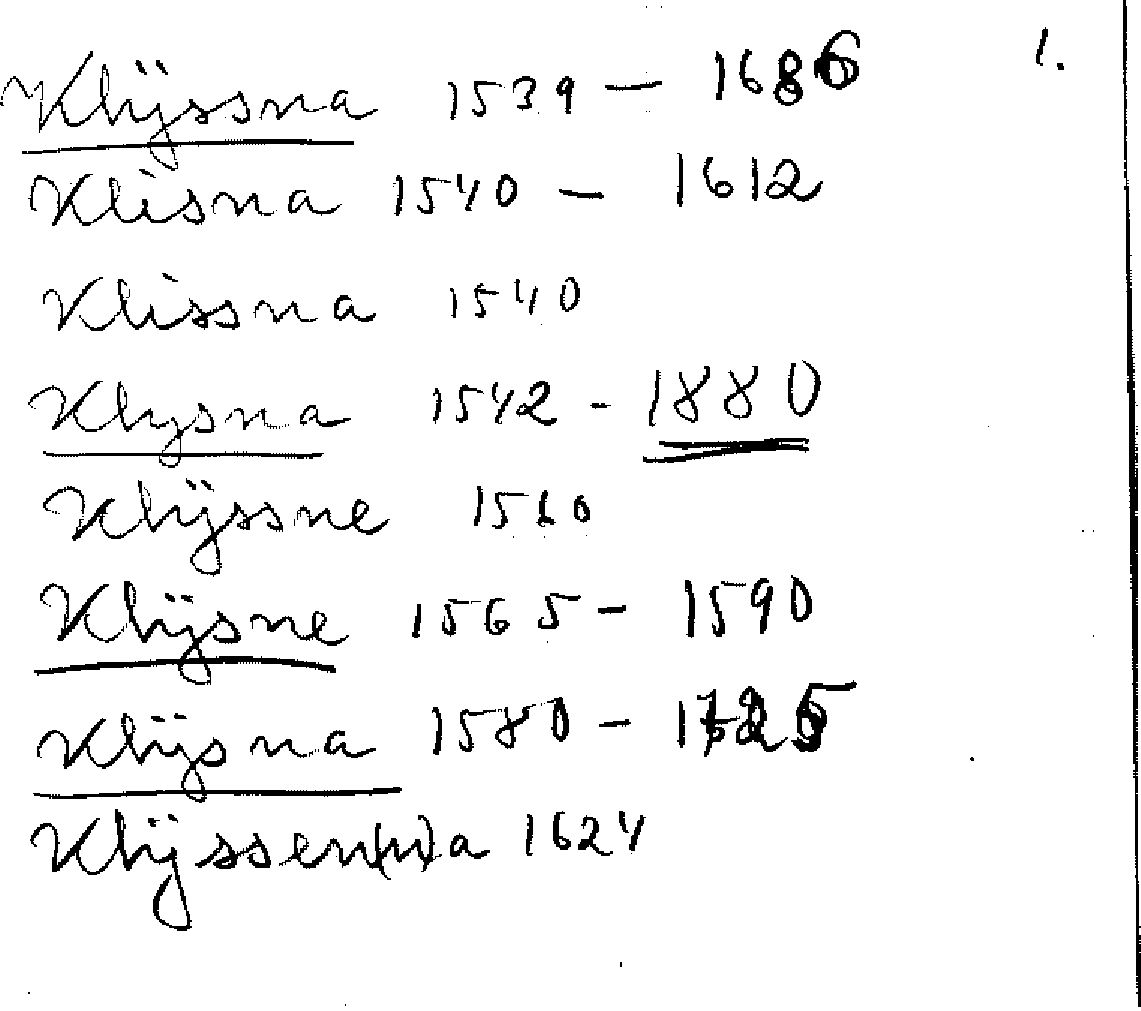 Klÿssna 1539 — 1686 1.
Klisna 1540 — 1612
Klissna 1540
Klysna 1542 - 1880
Klÿssne 1560
Klÿsne 1565 - 1590
Klÿsna 1580 -
Klÿssen(n)a 1624